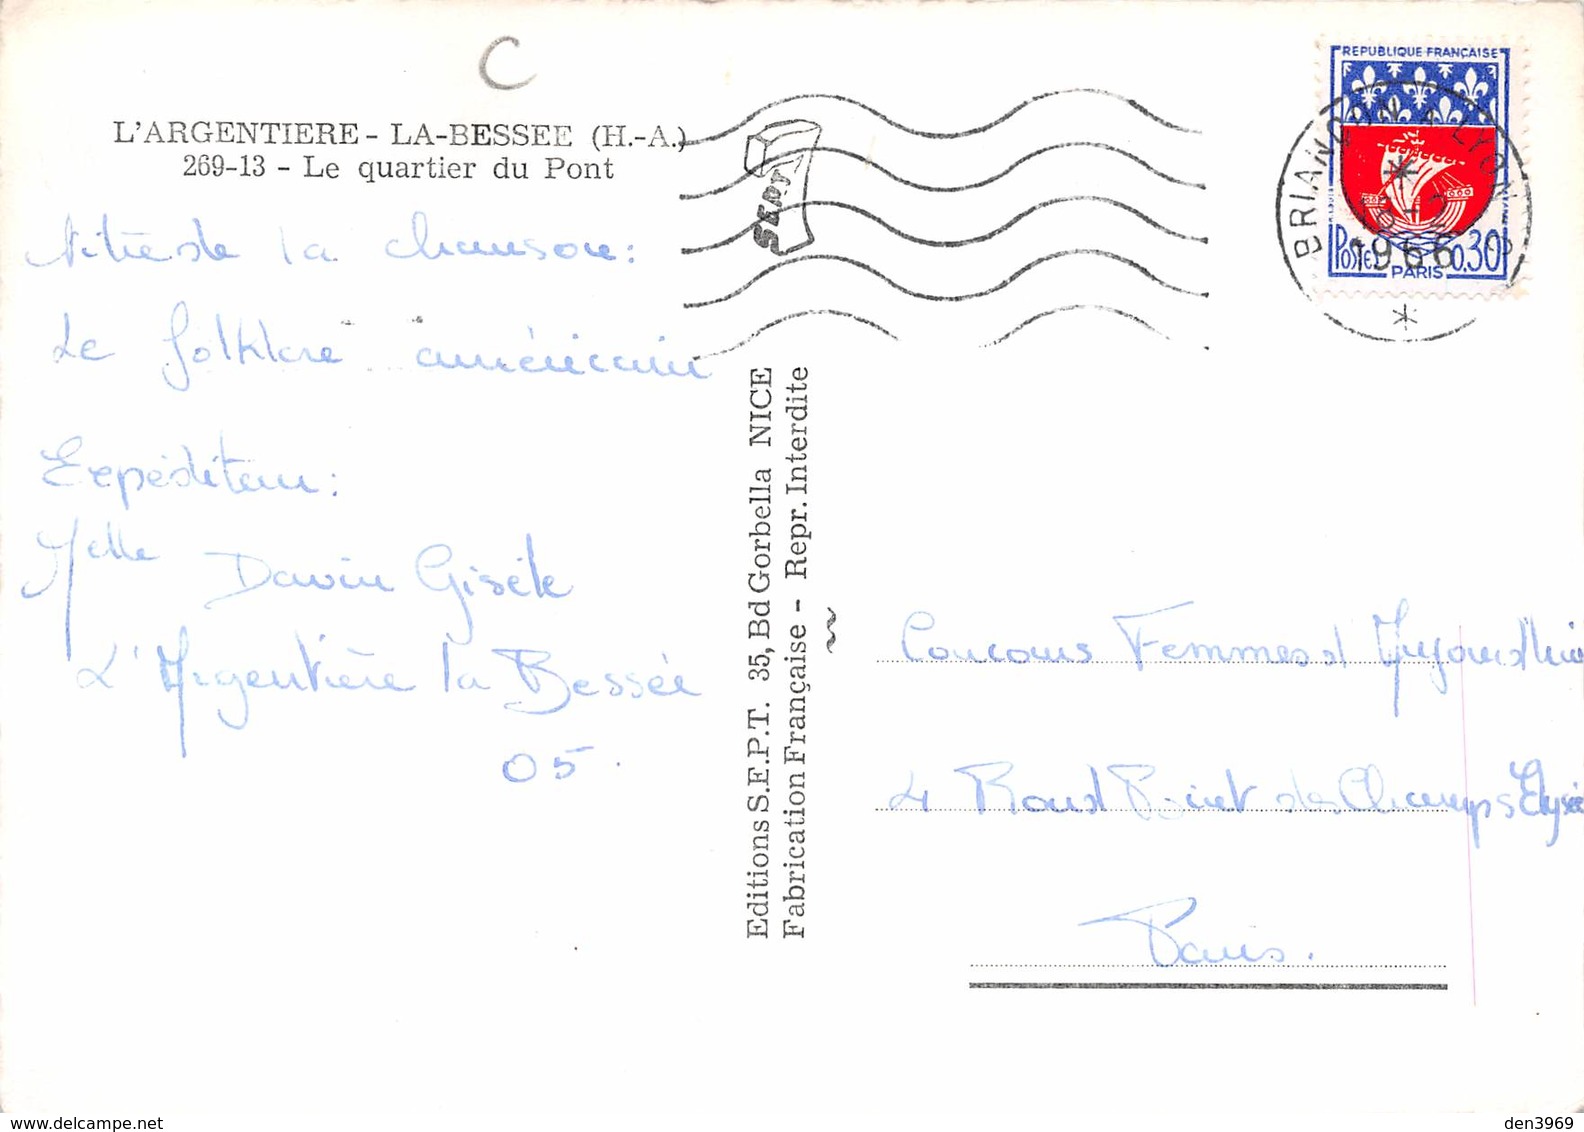 C
L'ARGENTIERE - LA-BESSEE (H.-A.)
269-13 - Le quartier du Pont
titre de la chanson:
Le folklore américain
Expéditeur:
Melle Davin Gisèle
L'Argentière la Bessée
05.
Editions S.E.P.T. 35, Bd Gorbella NICE
Fabrication Française - Repr. Interdite
SEPT
REPUBLIQUE FRANÇAISE
POSTES PARIS 0,30
BRIANÇON A LYON
1966
Concours Femmes d'Aujourd'hui
4 Rond Point des Champs Elysée
Paris.
delcampe.net
den3969